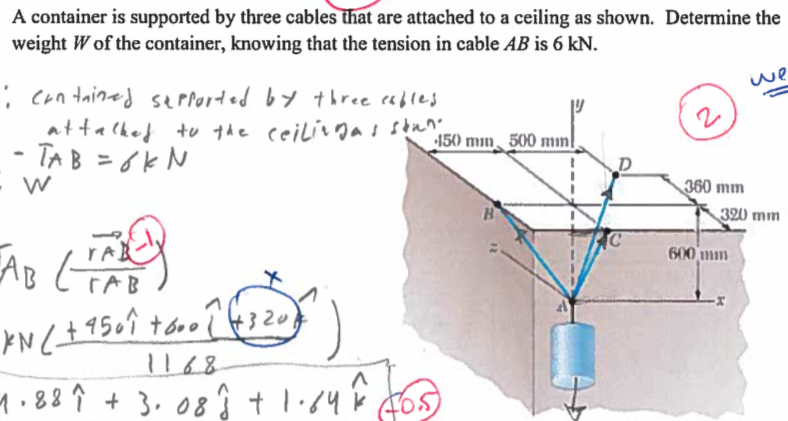 A container is supported by three cables that are attached to a ceiling as shown. Determine the
weight W of the container, knowing that the tension in cable AB is 6 kN.
we
: contained supported by three cables
attached to the ceiling as
- TAB = 6kN
W
2
y
450 mm 500 mm
D
360 mm
320 mm
B
C
z
600 mm
A
x
TAB (rAB / rAB)
-1
x
kN (+450î +600ĵ +320k̂ / 1168)
1.88 î + 3.08 ĵ + 1.64 k̂
+0.5